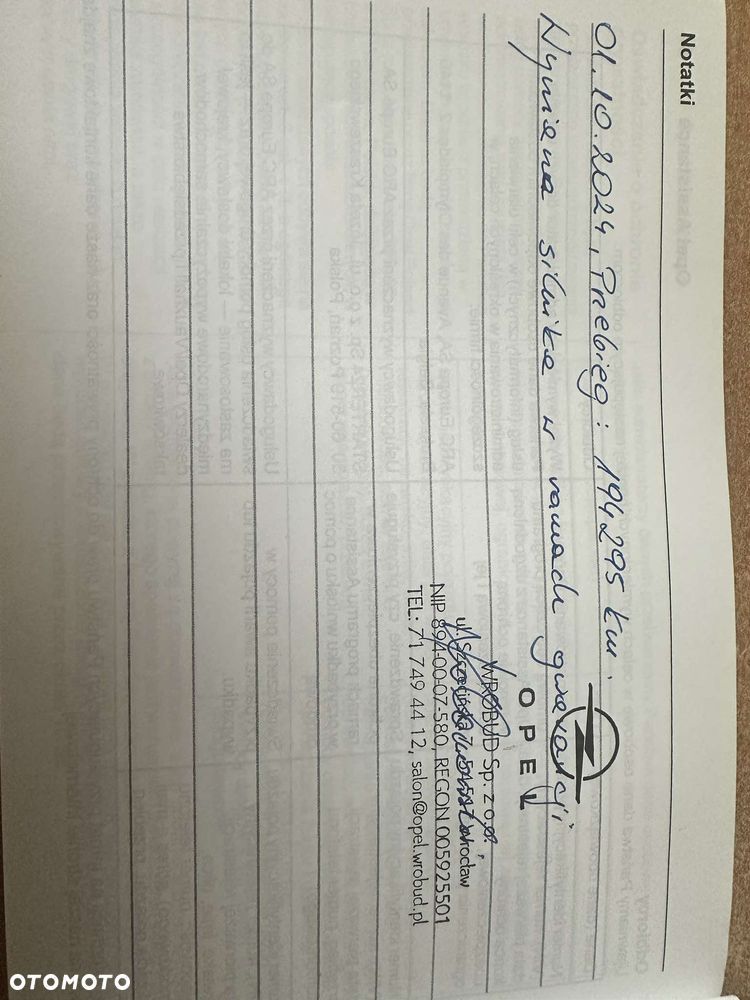 Notatki
01.10.2024, Przebieg: 194295 km.
Wymiana silnika w ramach gwarancji
OPEL
WROBUD Sp. z o.o.
ul. Szczecińska 7, Wrocław
NIP 894-00-07-580, REGON 005925501
TEL: 71 749 44 12, salon@opel.wrobud.pl
OTOMOTO